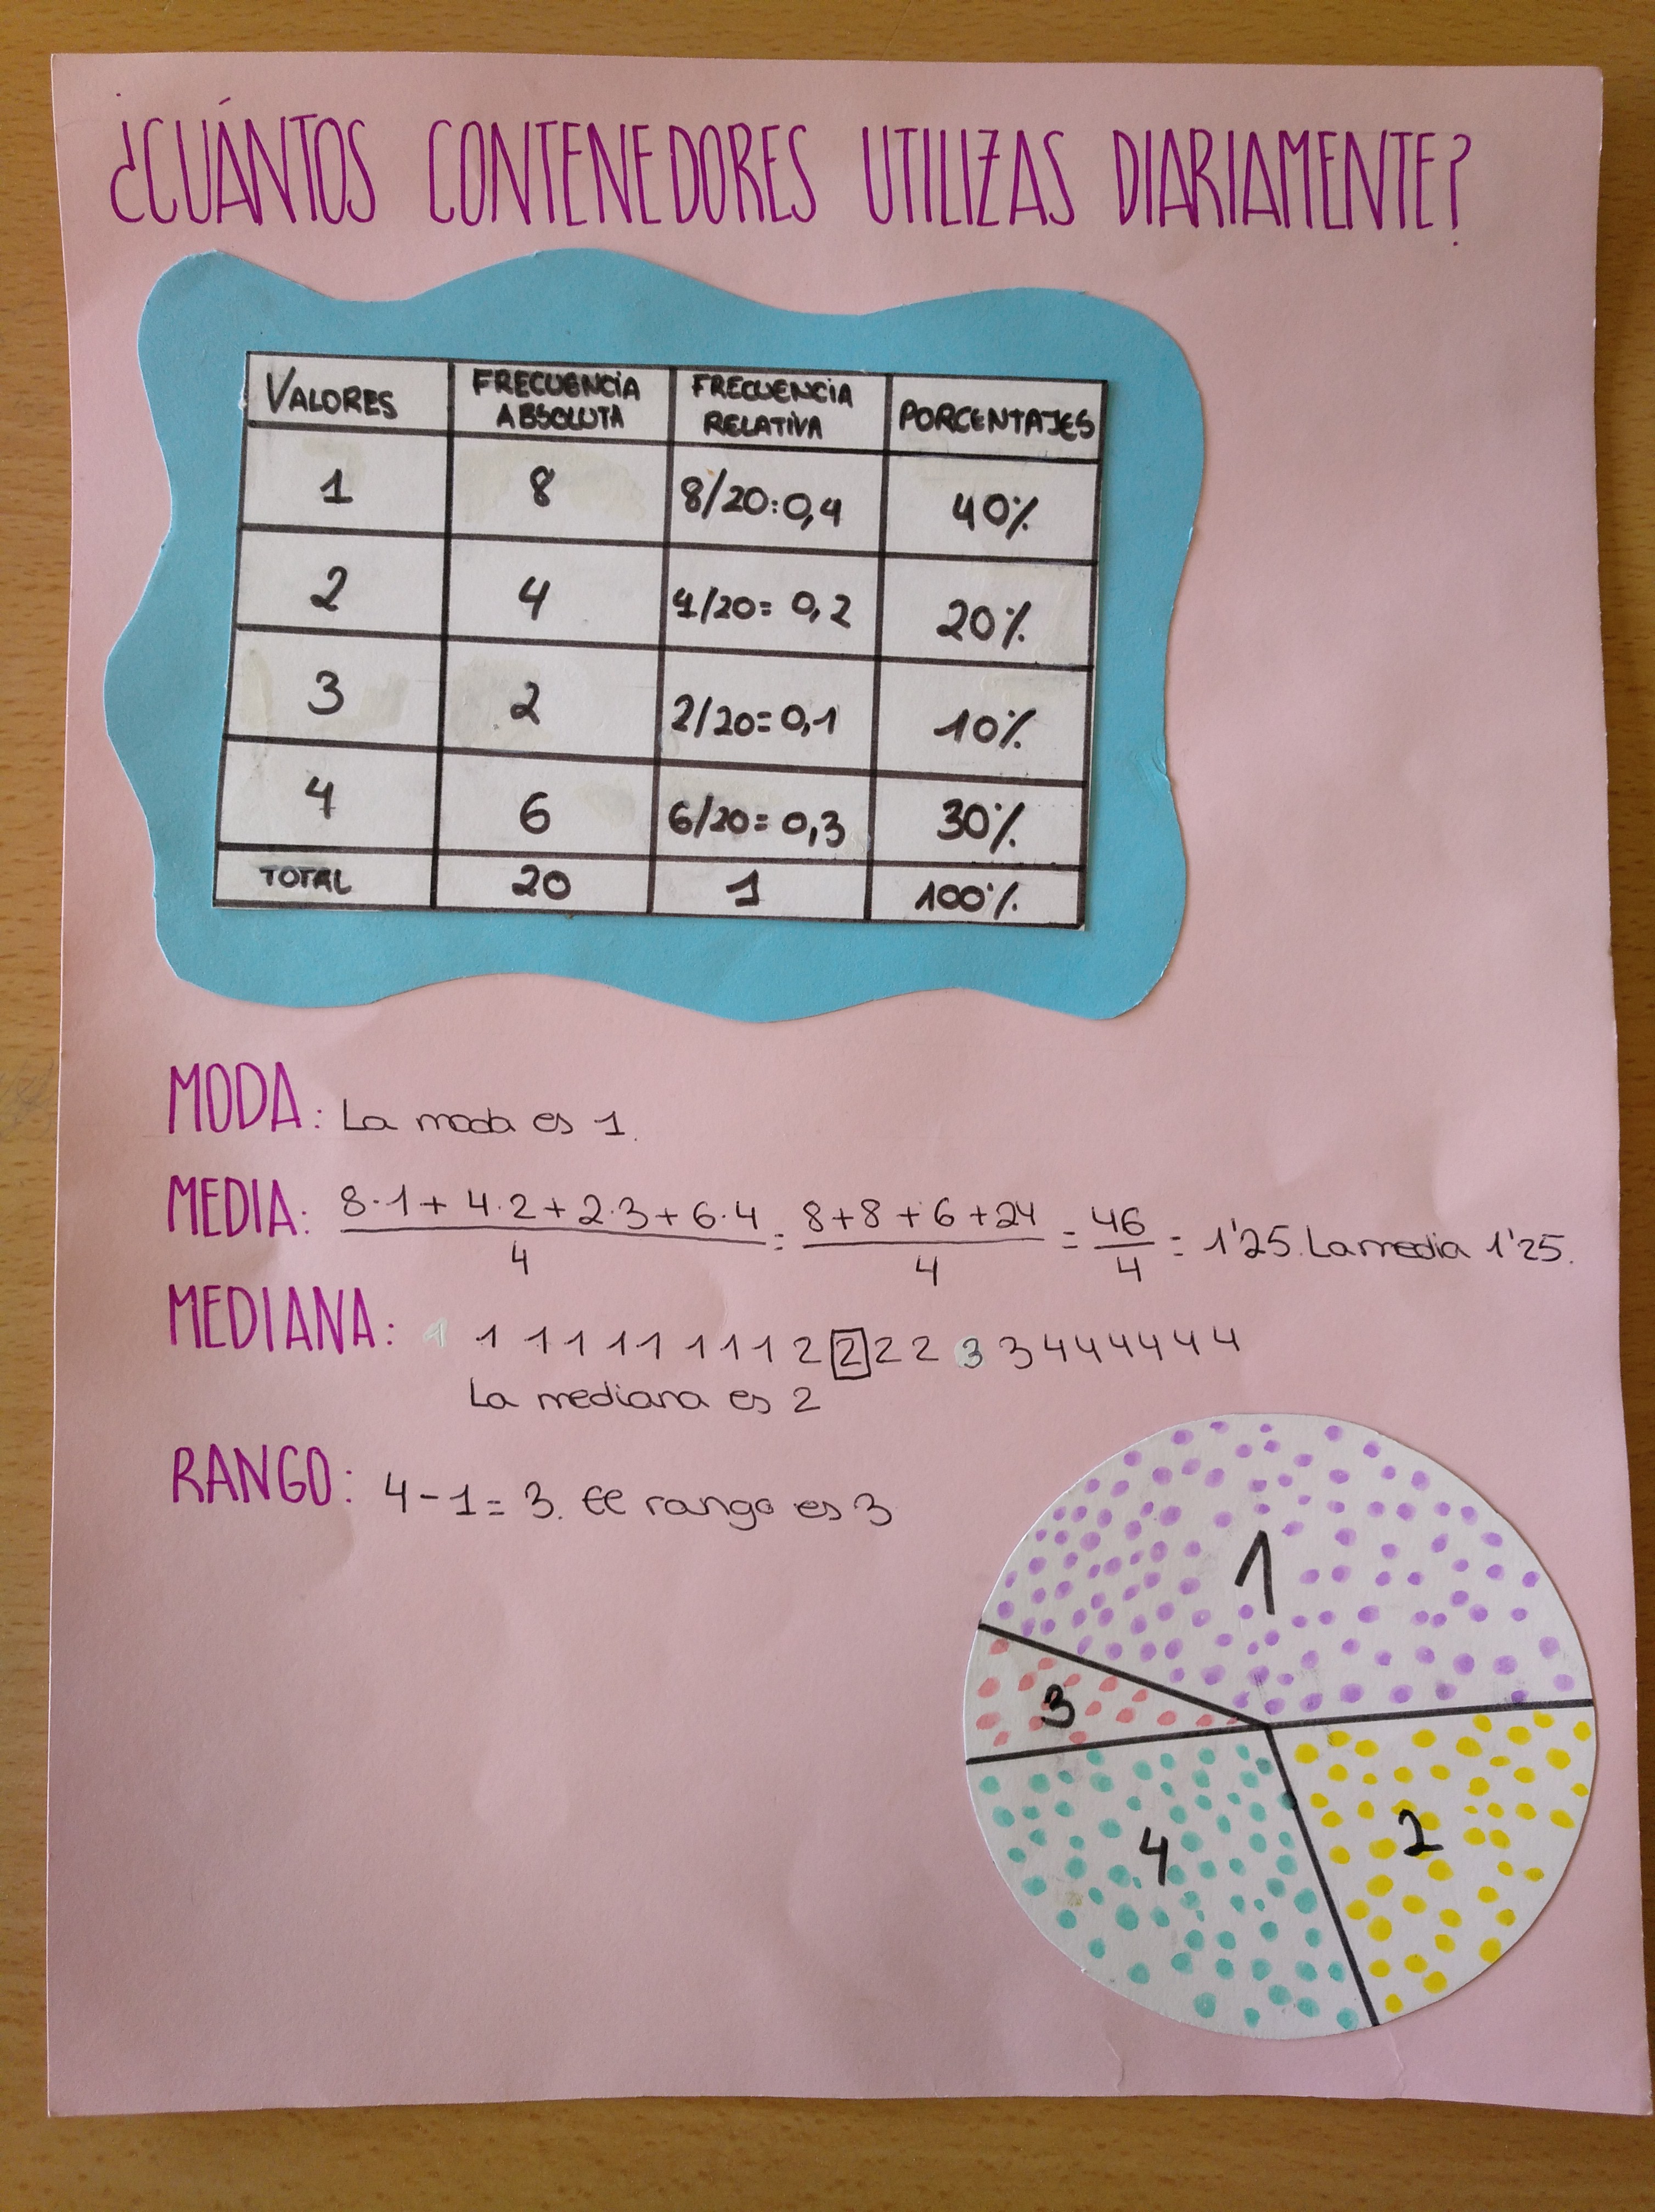 ¿CUÁNTOS CONTENEDORES UTILIZAS DIARIAMENTE?
VALORES FRECUENCIA ABSOLUTA FRECUENCIA RELATIVA PORCENTAJES
1 8 8/20:0,4 40%
2 4 4/20= 0,2 20%
3 2 2/20=0,1 10%
4 6 6/20= 0,3 30%
TOTAL 20 1 100%
MODA: La moda es 1.
MEDIA: 8·1+ 4·2+2·3+6·4/4 = 8+8+6+24/4 = 46/4 = 1'25. La media 1'25.
MEDIANA: 1 1 1 1 1 1 1 1 1 2 2 2 2 3 3 4 4 4 4 4 4
La mediana es 2
RANGO: 4-1=3. El rango es 3
1
3
2
4